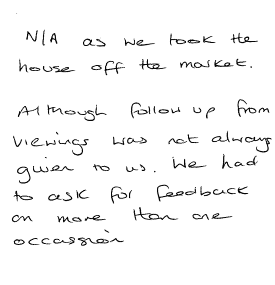 N/A as we took the
house off the market.
Although follow up from
viewings was not always
given to us. We had
to ask for feedback
on more than one
occassion